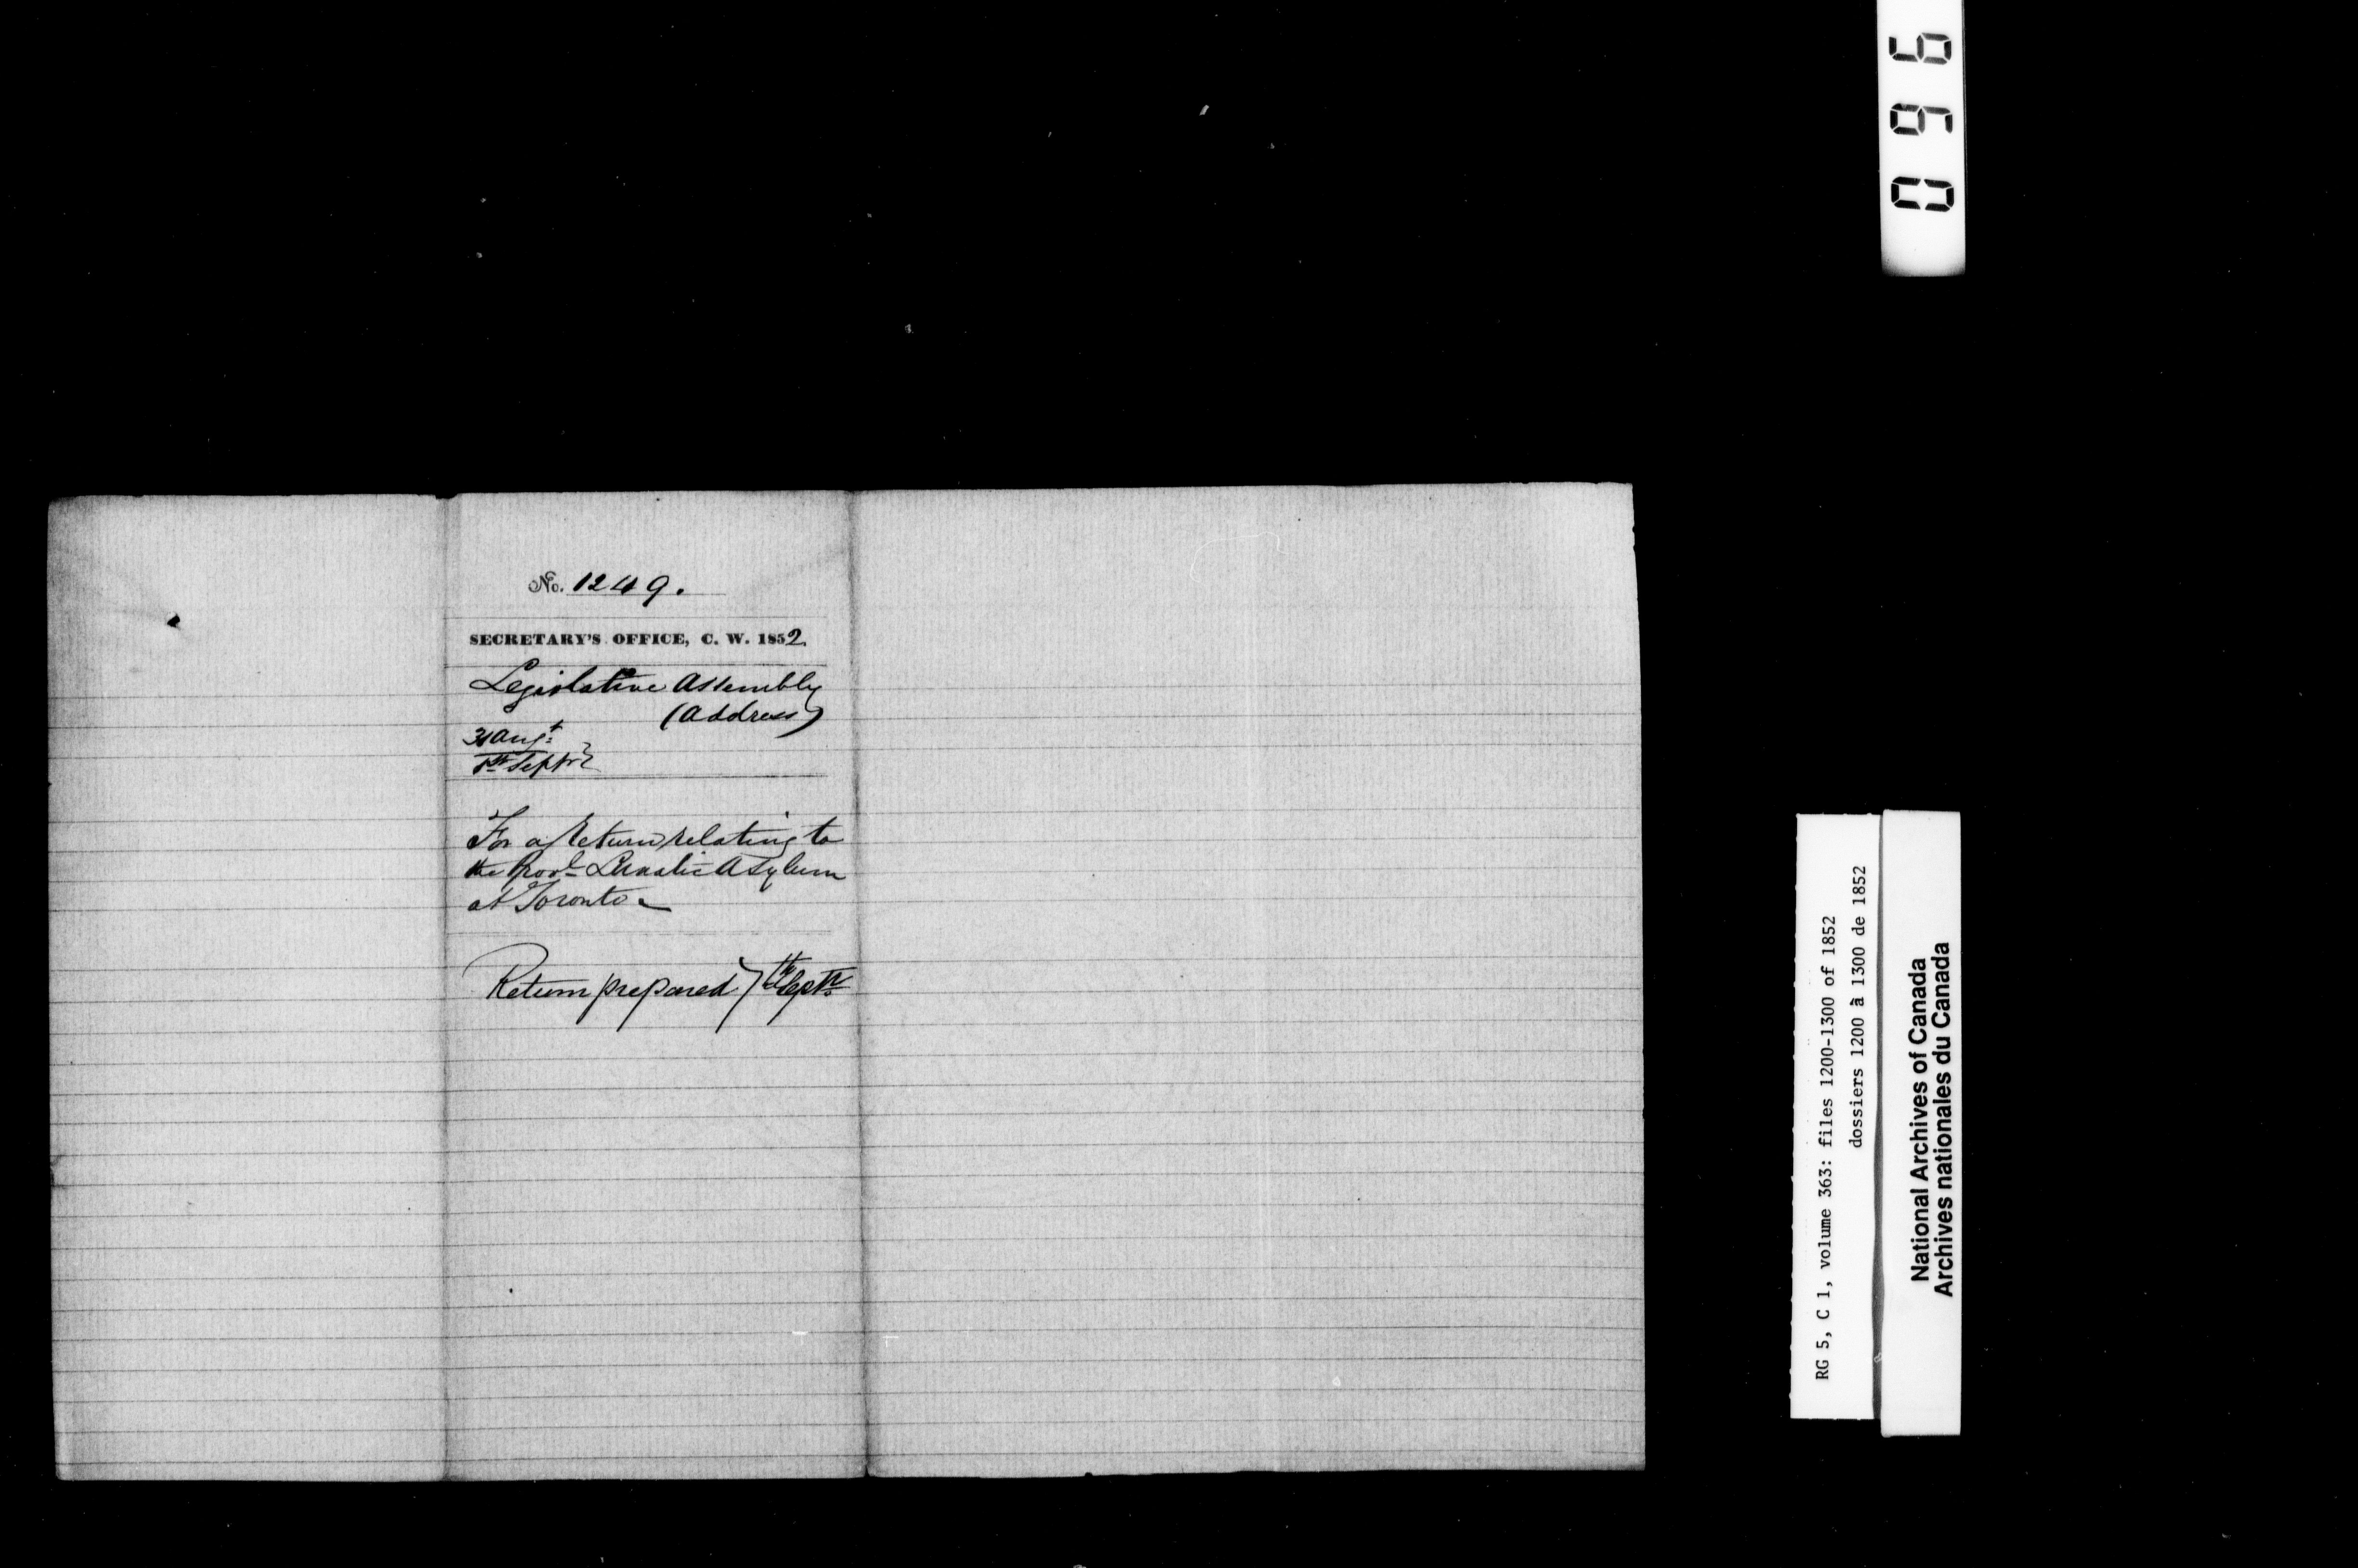 No. 1249.
SECRETARY'S OFFICE, C. W. 1852
Legislative Assembly
(Address)
31 Augt
1st Septr
For a Return relating to
the Provl Lunatic Asylum
at Toronto
Return prepared 7th Septr
096
RG 5, C 1, volume 363: files 1200-1300 of 1852
dossiers 1200 à 1300 de 1852
National Archives of Canada
Archives nationales du Canada